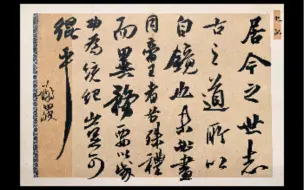 居今之世志
古之道所以
自鏡也未必盡
同帝王者各殊禮
而異務要以成
功為統紀豈可
緄乎